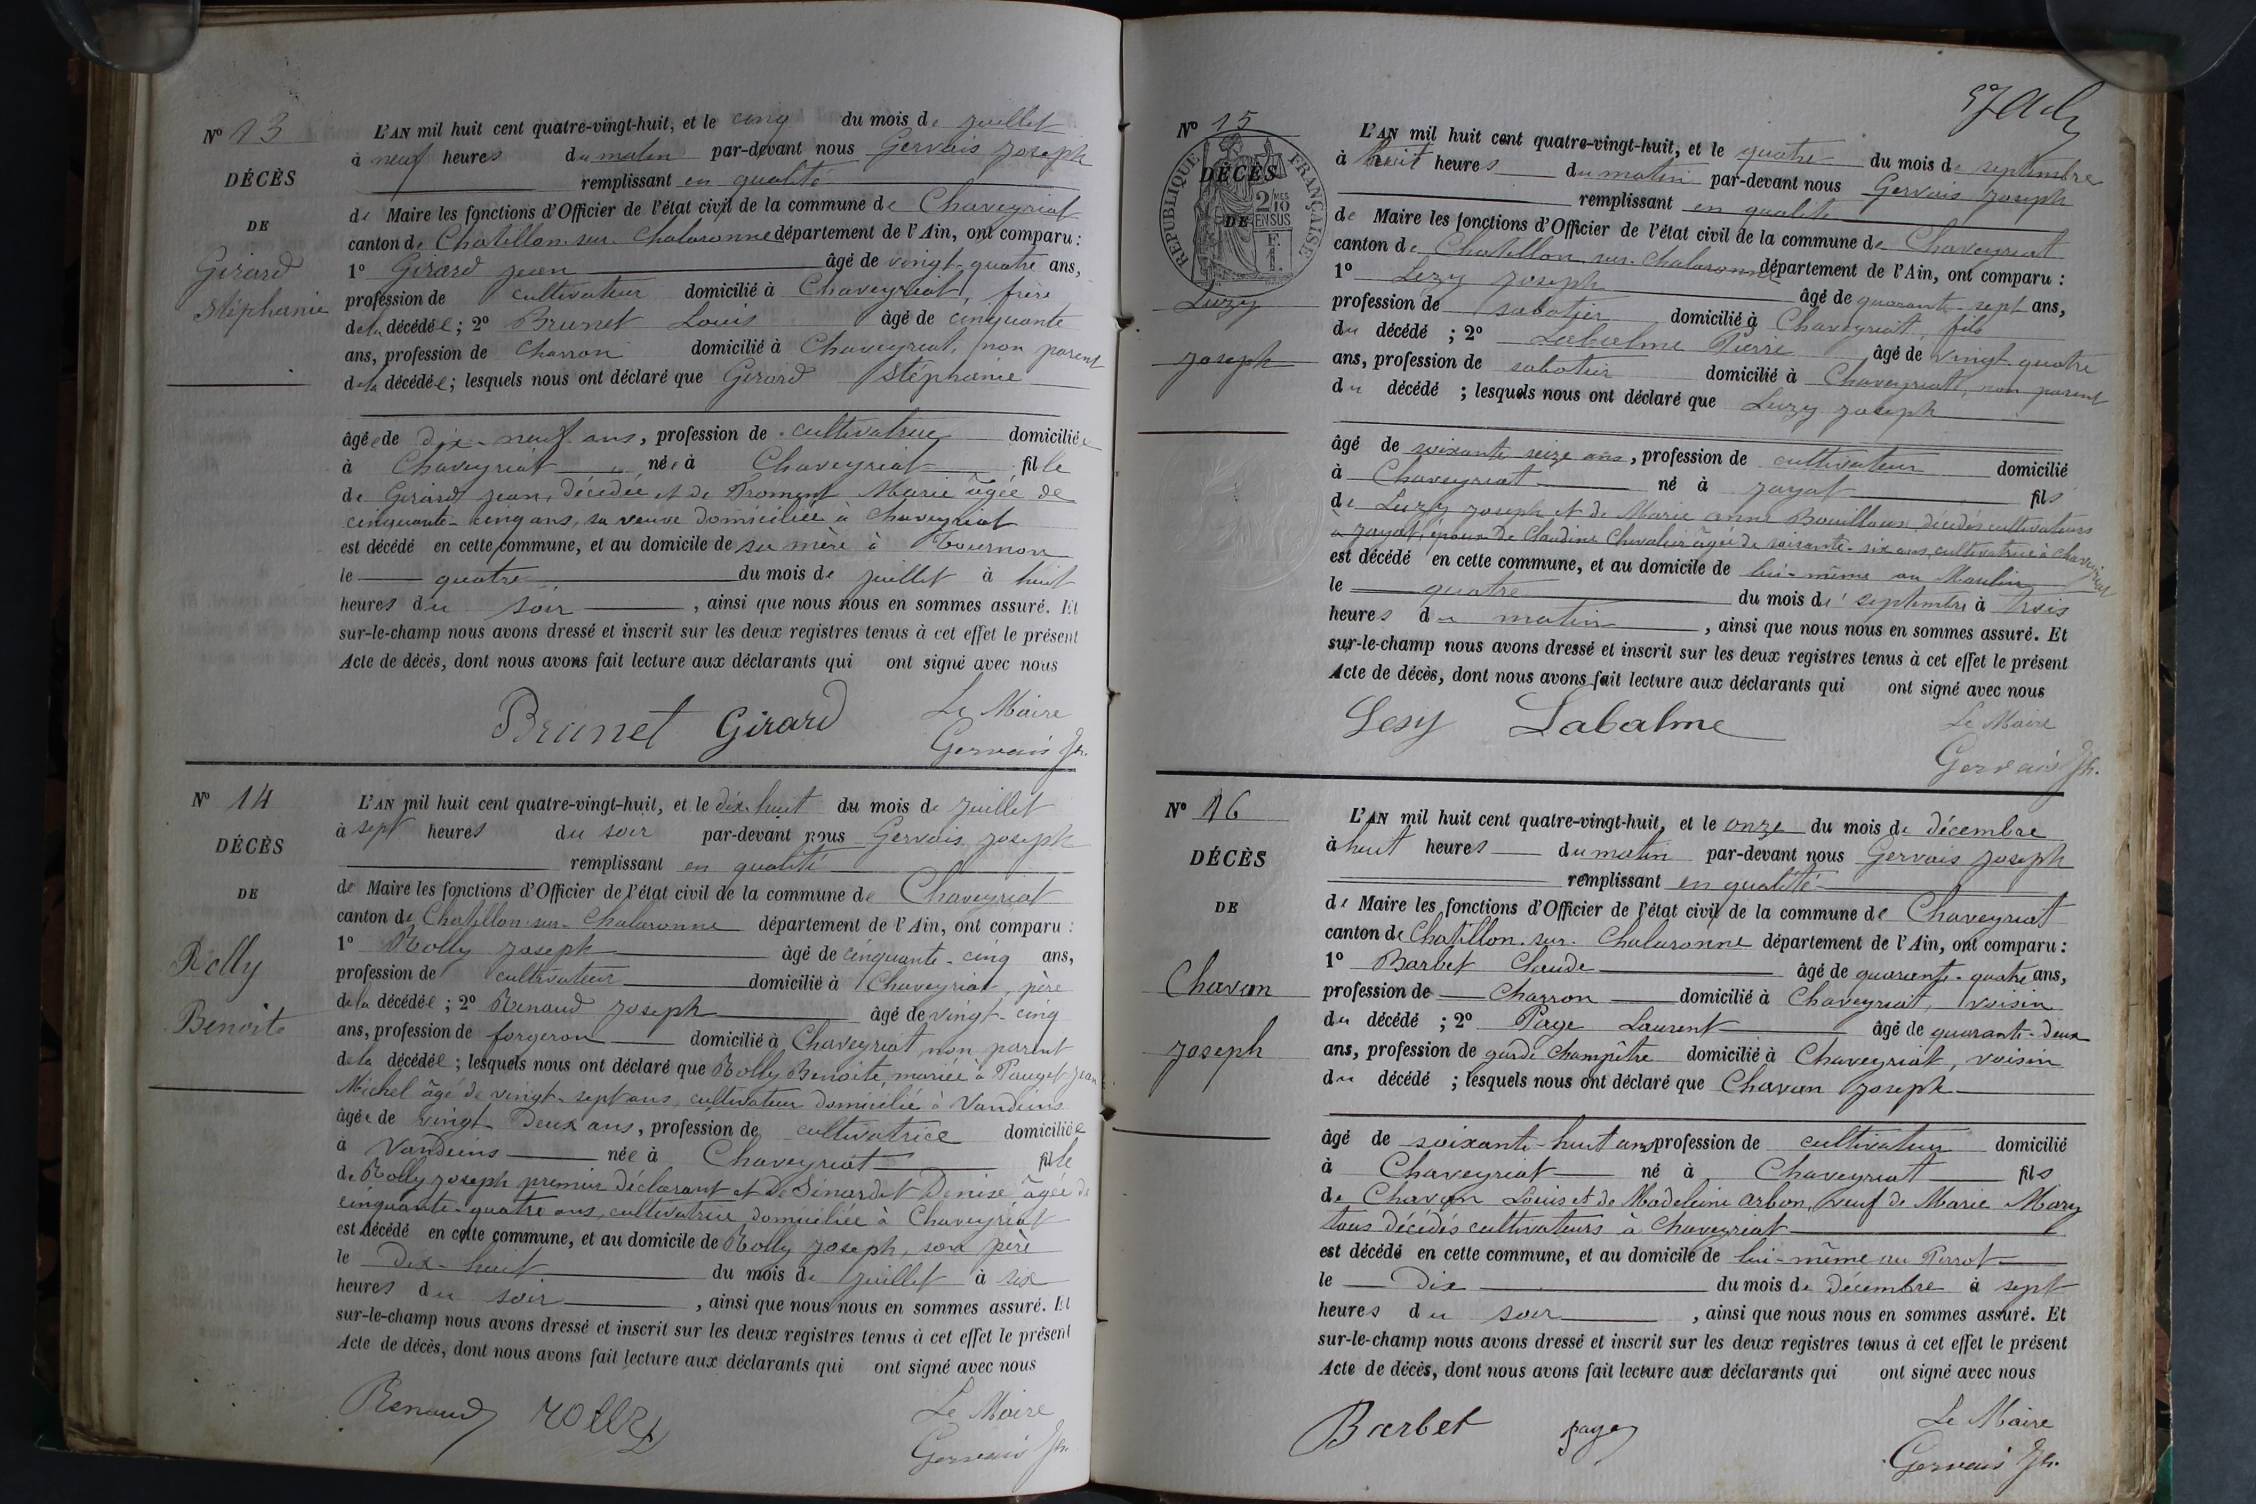 Nº 13
DÉCÈS
DE
Girard
Stéphanie
L'AN mil huit cent quatre-vingt-huit, et le cinq du mois de juillet
à neuf heures du matin par-devant nous Gervais Joseph
remplissant en qualité
de Maire les fonctions d'Officier de l'état civil de la commune de Chaveyriat
canton de Chatillon-sur-Chalaronne département de l'Ain, ont comparu :
1º Girard Jean âgé de vingt-quatre ans,
profession de cultivateur domicilié à Chaveyriat, frère
de la décédée ; 2º Brunet Louis âgé de cinquante
ans, profession de Charron domicilié à Chaveyriat, non parent
de la décédée ; lesquels nous ont déclaré que Girard Stéphanie
âgée de dix-neuf ans, profession de cultivatrice domiciliée
à Chaveyriat née à Chaveyriat fille
de Girard Jean, décédée et de Froment Marie âgée de
cinquante-cinq ans, sa veuve domiciliée à Chaveyriat
est décédé en cette commune, et au domicile de sa mère à Tournon
le quatre du mois de juillet à huit
heures du soir, ainsi que nous nous en sommes assuré. Et
sur-le-champ nous avons dressé et inscrit sur les deux registres tenus à cet effet le présent
Acte de décès, dont nous avons fait lecture aux déclarants qui ont signé avec nous
Brunet Girard Le Maire
Gervais Jh.
Nº 14
DÉCÈS
DE
Rolly
Benoite
L'AN mil huit cent quatre-vingt-huit, et le dix-huit du mois de juillet
à sept heures du soir par-devant nous Gervais Joseph
remplissant en qualité
de Maire les fonctions d'Officier de l'état civil de la commune de Chaveyriat
canton de Chatillon-sur-Chalaronne département de l'Ain, ont comparu :
1º Rolly Joseph âgé de cinquante-cinq ans,
profession de cultivateur domicilié à Chaveyriat, père
de la décédée ; 2º Renaud Joseph âgé de vingt-cinq
ans, profession de forgeron domicilié à Chaveyriat, non parent
de la décédée ; lesquels nous ont déclaré que Rolly Benoite, mariée à Pauget Jean
Michel âgé de vingt-sept ans, cultivateur domiciliée à Vandeins
âgée de vingt-Deux ans, profession de cultivatrice domiciliée
à Vandeins née à Chaveyriat fille
de Rolly Joseph premier déclarant et de Sinardet Denise âgée de
cinquante-quatre ans, cultivatrice domiciliée à Chaveyriat
est décédé en cette commune, et au domicile de Rolly Joseph, son père
le Dix-huit du mois de juillet à six
heures du soir, ainsi que nous nous en sommes assuré. Et
sur-le-champ nous avons dressé et inscrit sur les deux registres tenus à cet effet le présent
Acte de décès, dont nous avons fait lecture aux déclarants qui ont signé avec nous
Renaud Rolly Le Maire
Gervais Jh.
Nº 15
RÉPUBLIQUE FRANÇAISE
2/10 MES
EN SUS
DÉCÈS
DE
Luzy
Joseph
L'AN mil huit cent quatre-vingt-huit, et le quatre du mois de septembre
à huit heures du matin par-devant nous Gervais Joseph
remplissant en qualité
de Maire les fonctions d'Officier de l'état civil de la commune de Chaveyriat
canton de Chatillon-sur-Chalaronne département de l'Ain, ont comparu :
1º Lezy Joseph âgé de quarante-sept ans,
profession de sabotier domicilié à Chaveyriat fils
du décédé ; 2º Labalme Pierre âgé de vingt-quatre
ans, profession de sabotier domicilié à Chaveyriat, non parent
du décédé ; lesquels nous ont déclaré que Luzy Joseph
âgé de soixante seize ans, profession de cultivateur domicilié
à Chaveyriat né à Jayat fils
de Luzy Joseph et de Marie Anne Bouilloux décédés cultivateurs
à Jayat, époux de Claudine Chevalier âgée de soixante-six ans, cultivatrice à Chaveyriat
est décédé en cette commune, et au domicile de lui-même au Moulin
le quatre du mois de septembre à trois
heures du matin, ainsi que nous nous en sommes assuré. Et
sur-le-champ nous avons dressé et inscrit sur les deux registres tenus à cet effet le présent
Acte de décès, dont nous avons fait lecture aux déclarants qui ont signé avec nous
Lesy Labalme Le Maire
Gervais Jh.
Nº 16
DÉCÈS
DE
Chavan
Joseph
L'AN mil huit cent quatre-vingt-huit, et le onze du mois de décembre
à huit heures du matin par-devant nous Gervais Joseph
remplissant en qualité
de Maire les fonctions d'Officier de l'état civil de la commune de Chaveyriat
canton de Chatillon-sur-Chalaronne département de l'Ain, ont comparu :
1º Barbet Claude âgé de quarante-quatre ans,
profession de Charron domicilié à Chaveyriat, voisin
du décédé ; 2º Page Laurent âgé de quarante-deux
ans, profession de garde champêtre domicilié à Chaveyriat, voisin
du décédé ; lesquels nous ont déclaré que Chavan Joseph
âgé de soixante-huit ans profession de cultivateur domicilié
à Chaveyriat né à Chaveyriat fils
de Chavan Louis et de Madeleine Arbon, veuf de Marie Mary
tous décédés cultivateurs à Chaveyriat
est décédé en cette commune, et au domicile de lui-même au Perrot
le Dix du mois de décembre à sept
heures du soir, ainsi que nous nous en sommes assuré. Et
sur-le-champ nous avons dressé et inscrit sur les deux registres tenus à cet effet le présent
Acte de décès, dont nous avons fait lecture aux déclarants qui ont signé avec nous
Barbet page Le Maire
Gervais Jh.